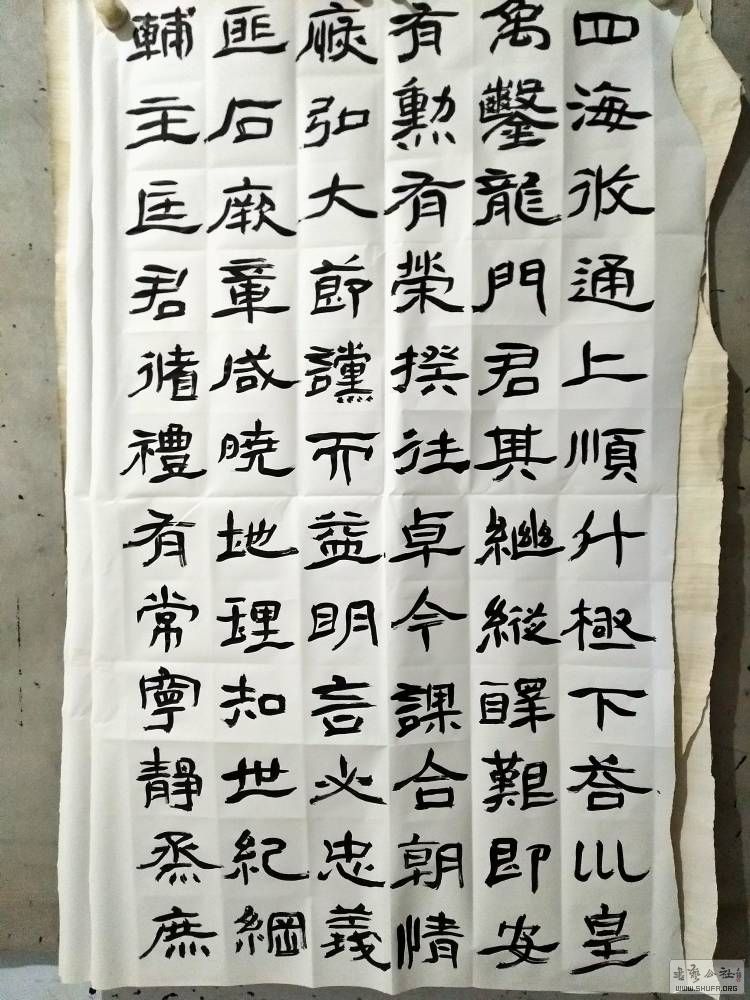 四海攸通上順斗極下荅巛皇
禹鑿龍門君其繼縱醳艱即安
有勳有榮揆往卓今謀合朝情
恢弘大節讜而益明言必忠義
匪石厥章咸曉地理知世紀綱
輔主匡君循禮有常寧靜烝庶
书艺公社
WWW.SHUFA.ORG